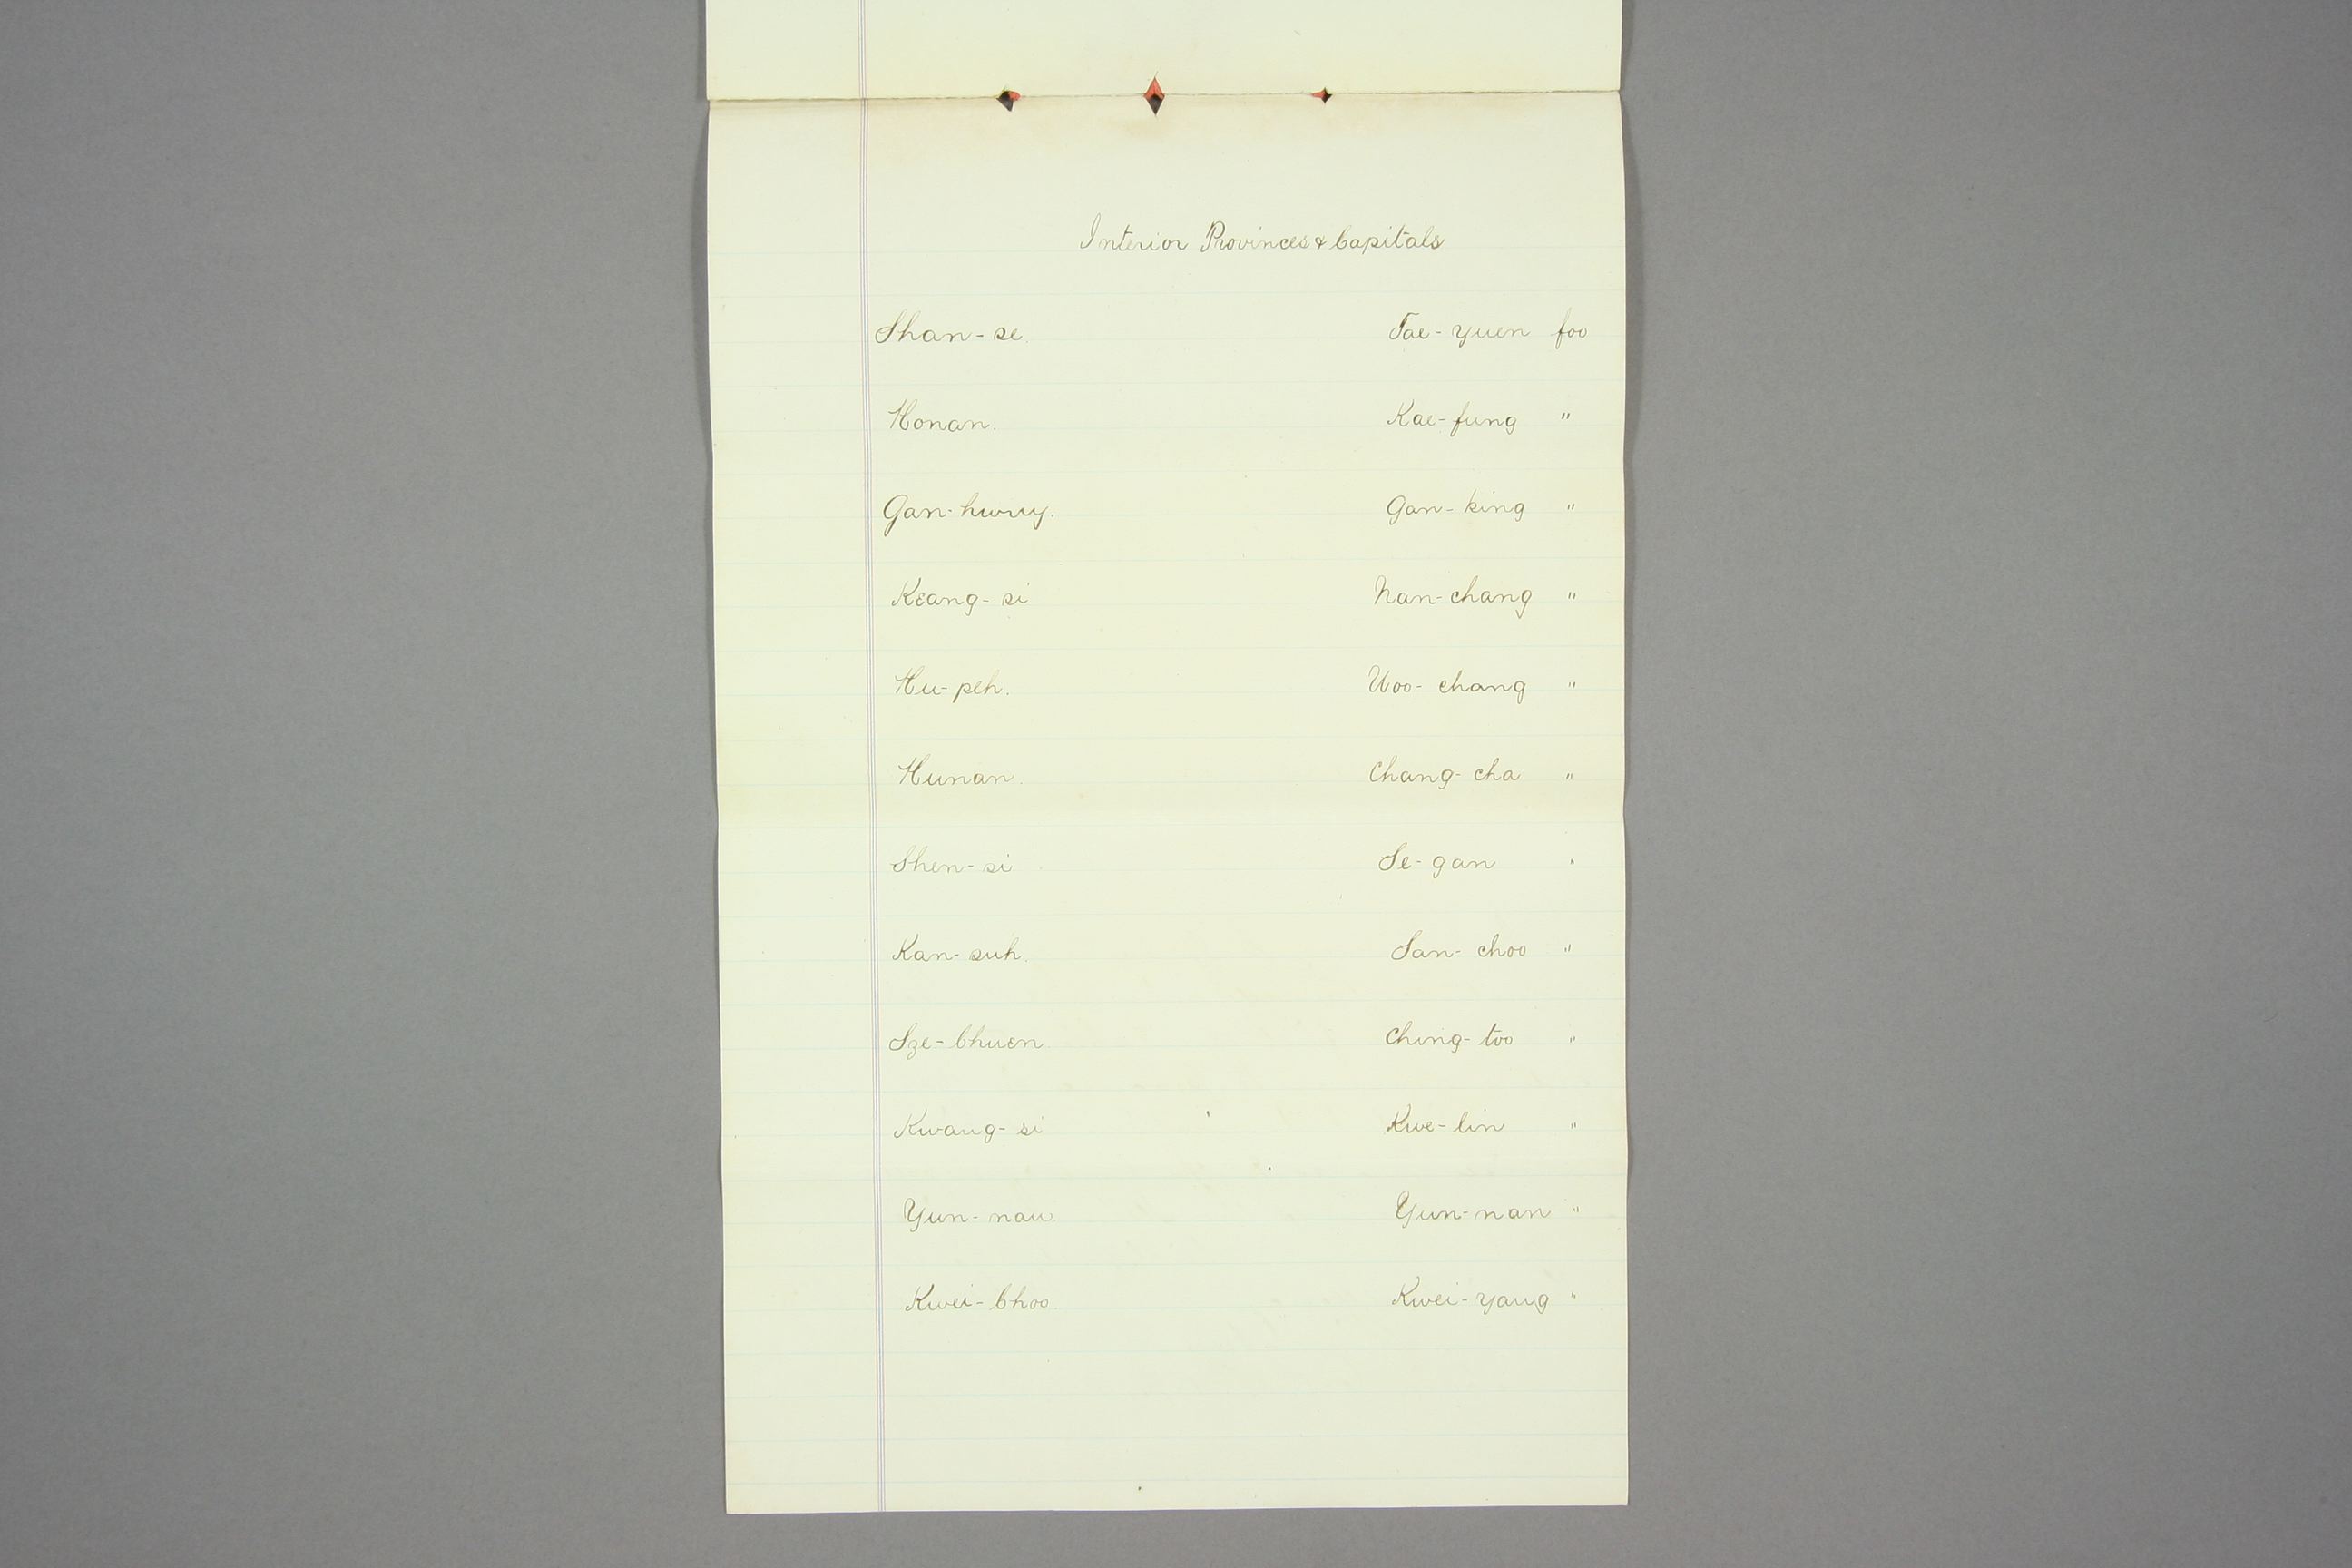 Interior Provinces & Capitals
Shan-se. Tae-yuen foo
Honan. Kae-fung "
Gan-hwuy. Gan-king "
Keang-si Nan-chang "
Hu-peh. Woo-chang "
Hunan. Chang-cha "
Shen-si Se-gan "
Kan-suh. San-choo "
Sze-Chuen Ching-too "
Kwang-si Kwe-lin "
Yun-nan. Yun-nan "
Kwei-Choo. Kwei-yang "